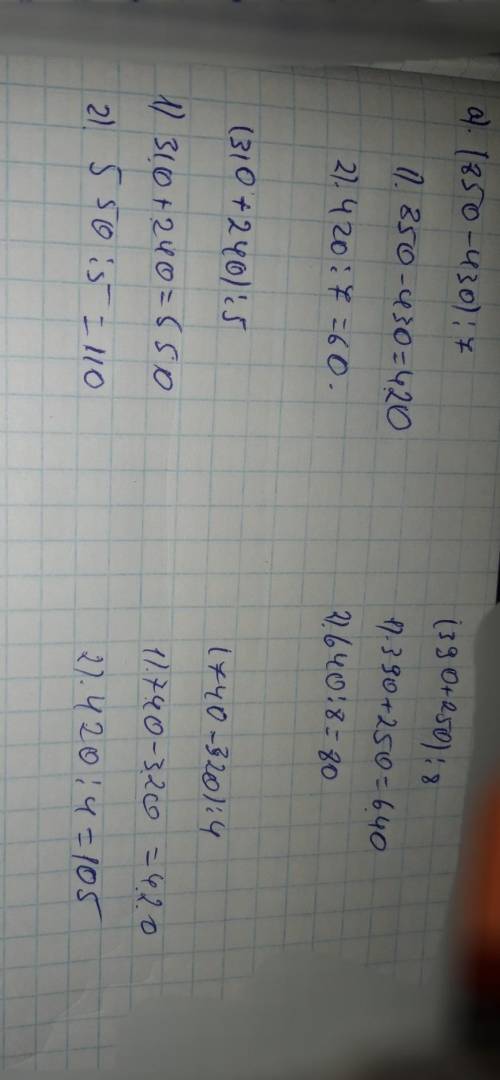 а). (850-430):7
1). 850-430=420
2). 420:7=60.
(310+240):5
1) 310+240=550
2). 550:5=110
(390+250):8
1). 390+250=640
2). 640:8=80
(740-320):4
1). 740-320=420
2). 420:4=105